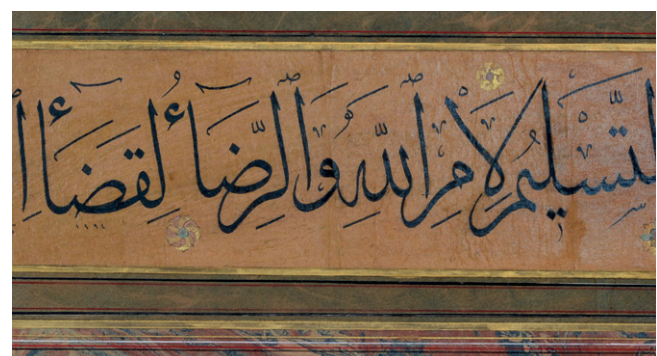 لتَّسْلِيمُ لِأَمْرِ اللّٰهِ وَالرِّضَاءُ لِقَضَاءِ ا